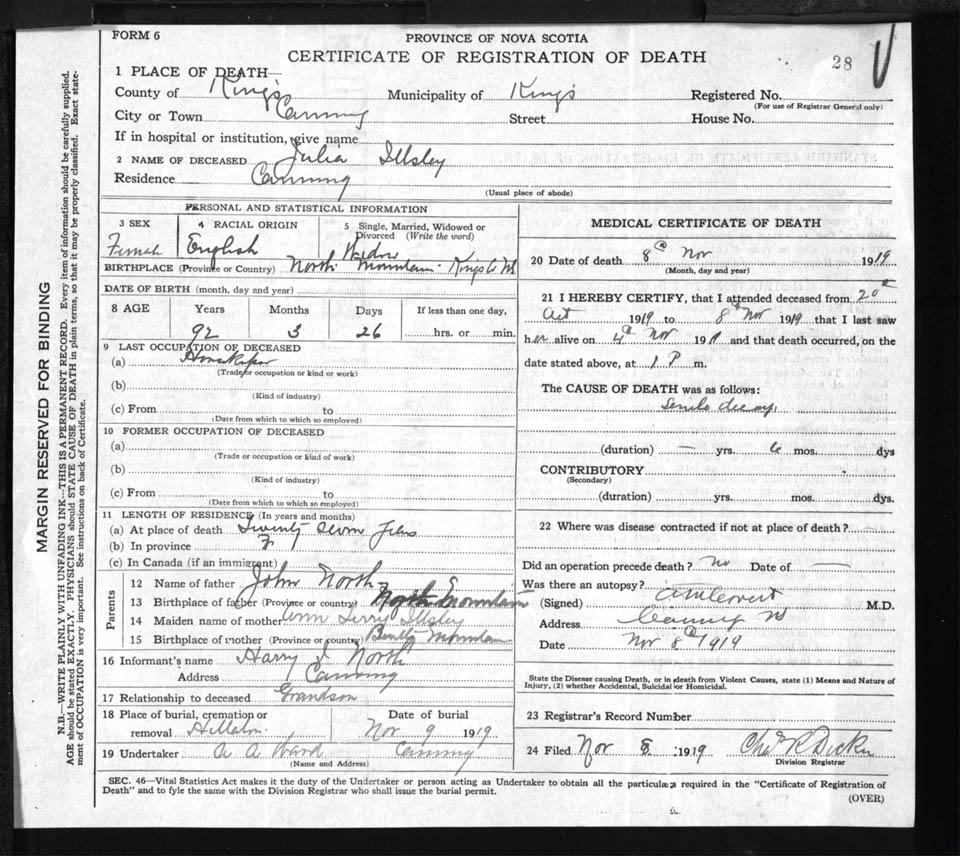 FORM 6
PROVINCE OF NOVA SCOTIA
CERTIFICATE OF REGISTRATION OF DEATH
28
1 PLACE OF DEATH—
County of King's Municipality of King's Registered No.
(For use of Registrar General only)
City or Town Canning Street House No.
If in hospital or institution, give name
2 NAME OF DECEASED Julia Illsley
Residence Canning
(Usual place of abode)
PERSONAL AND STATISTICAL INFORMATION
3 SEX Female
4 RACIAL ORIGIN English
5 Single, Married, Widowed or Divorced (Write the word) Widow
BIRTHPLACE (Province or Country) North Mountain Kings Co
DATE OF BIRTH (month, day and year)
8 AGE Years Months Days If less than one day,
92 3 26 hrs. or min.
9 LAST OCCUPATION OF DECEASED
(a) Housekeeper
(Trade or occupation or kind of work)
(b)
(Kind of industry)
(c) From to
(Date from which to which so employed)
10 FORMER OCCUPATION OF DECEASED
(a)
(Trade or occupation or kind of work)
(b)
(Kind of industry)
(c) From to
(Date from which to which so employed)
11 LENGTH OF RESIDENCE (In years and months)
(a) At place of death Twenty
(b) In province
(c) In Canada (if an immigrant)
Parents
12 Name of father John North
13 Birthplace of father (Province or country) North Mountain
14 Maiden name of mother Ann Illsley
15 Birthplace of mother (Province or country) Mountain
16 Informant's name Harry North
Address Canning
17 Relationship to deceased Grandson
18 Place of burial, cremation or removal Hillaton
Date of burial
Nov 9 1919
19 Undertaker A A Ward Canning
(Name and Address)
MEDICAL CERTIFICATE OF DEATH
20 Date of death 8th Nov 1919
(Month, day and year)
21 I HEREBY CERTIFY, that I attended deceased from 20th
Oct 1919 to 8th Nov 1919 that I last saw
her alive on 4th Nov 191 and that death occurred, on the
date stated above, at 1 P m.
The CAUSE OF DEATH was as follows:
Senile decay
(duration) — yrs. 6 mos. dys
CONTRIBUTORY
(Secondary)
(duration) yrs. mos. dys.
22 Where was disease contracted if not at place of death?
Did an operation precede death? no Date of —
Was there an autopsy?
(Signed) M.D.
Address Canning
Date Nov 8th 1919
State the Disease causing Death, or in death from Violent Causes, state (1) Means and Nature of
Injury, (2) whether Accidental, Suicidal or Homicidal.
23 Registrar's Record Number
24 Filed Nov 8 1919 Chas R Dickie
Division Registrar
SEC. 46—Vital Statistics Act makes it the duty of the Undertaker or person acting as Undertaker to obtain all the particulars required in the "Certificate of Registration of
Death" and to fyle the same with the Division Registrar who shall issue the burial permit.
(OVER)
MARGIN RESERVED FOR BINDING
N.B. WRITE PLAINLY WITH UNFADING INK—THIS IS A PERMANENT RECORD. Every item of information should be carefully supplied.
AGE should be stated EXACTLY. PHYSICIANS should STATE CAUSE OF DEATH in plain terms, so that it may be properly classified. Exact state-
ment of OCCUPATION is very important. See instructions on back of Certificate.